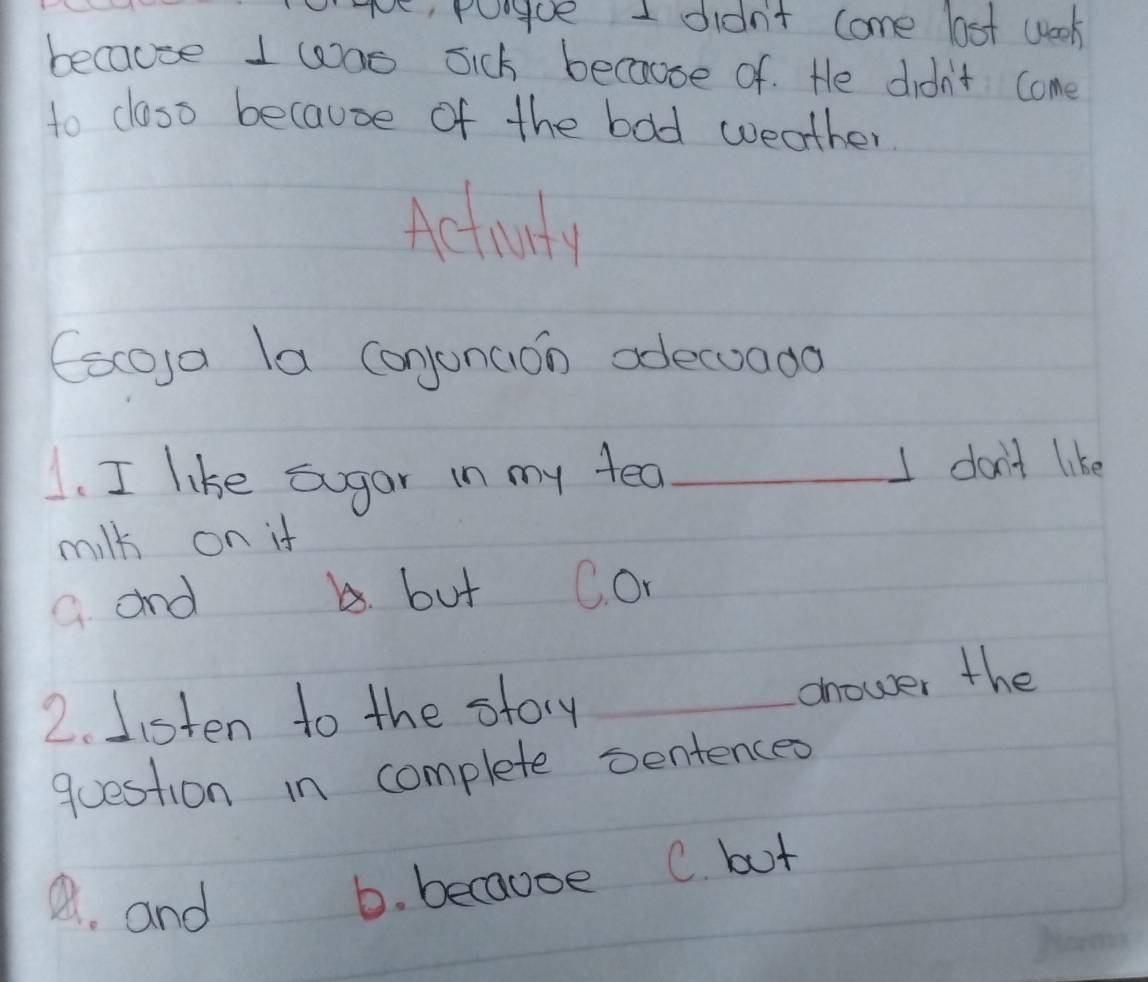 I didn't come last week
because I was sick because of. He didn't come
to class because of the bad weather.
Activity
Escoja la conjunción adecuada
1. I like sugar in my tea ________ I don't like
milk on it
a. and b. but C. Or
2. Listen to the story ________ answer the
question in complete sentences
a. and b. because C. but
Norma